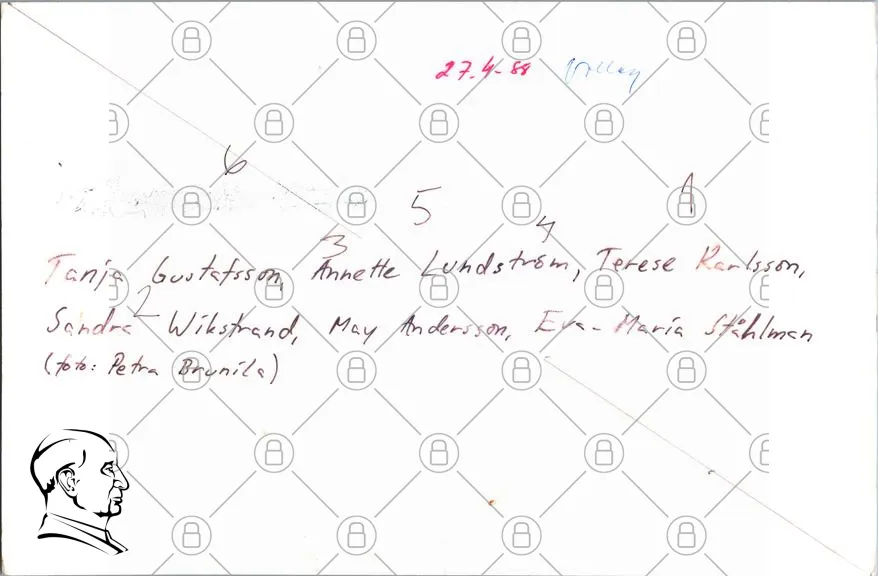 27.4-88 Volley
6
5
1
4
3
Tanja Gustafsson, Annette Lundström, Terese Karlsson,
2
Sandra Wikstrand, May Andersson, Eva-Maria Ståhlman
(foto: Petra Brunila)